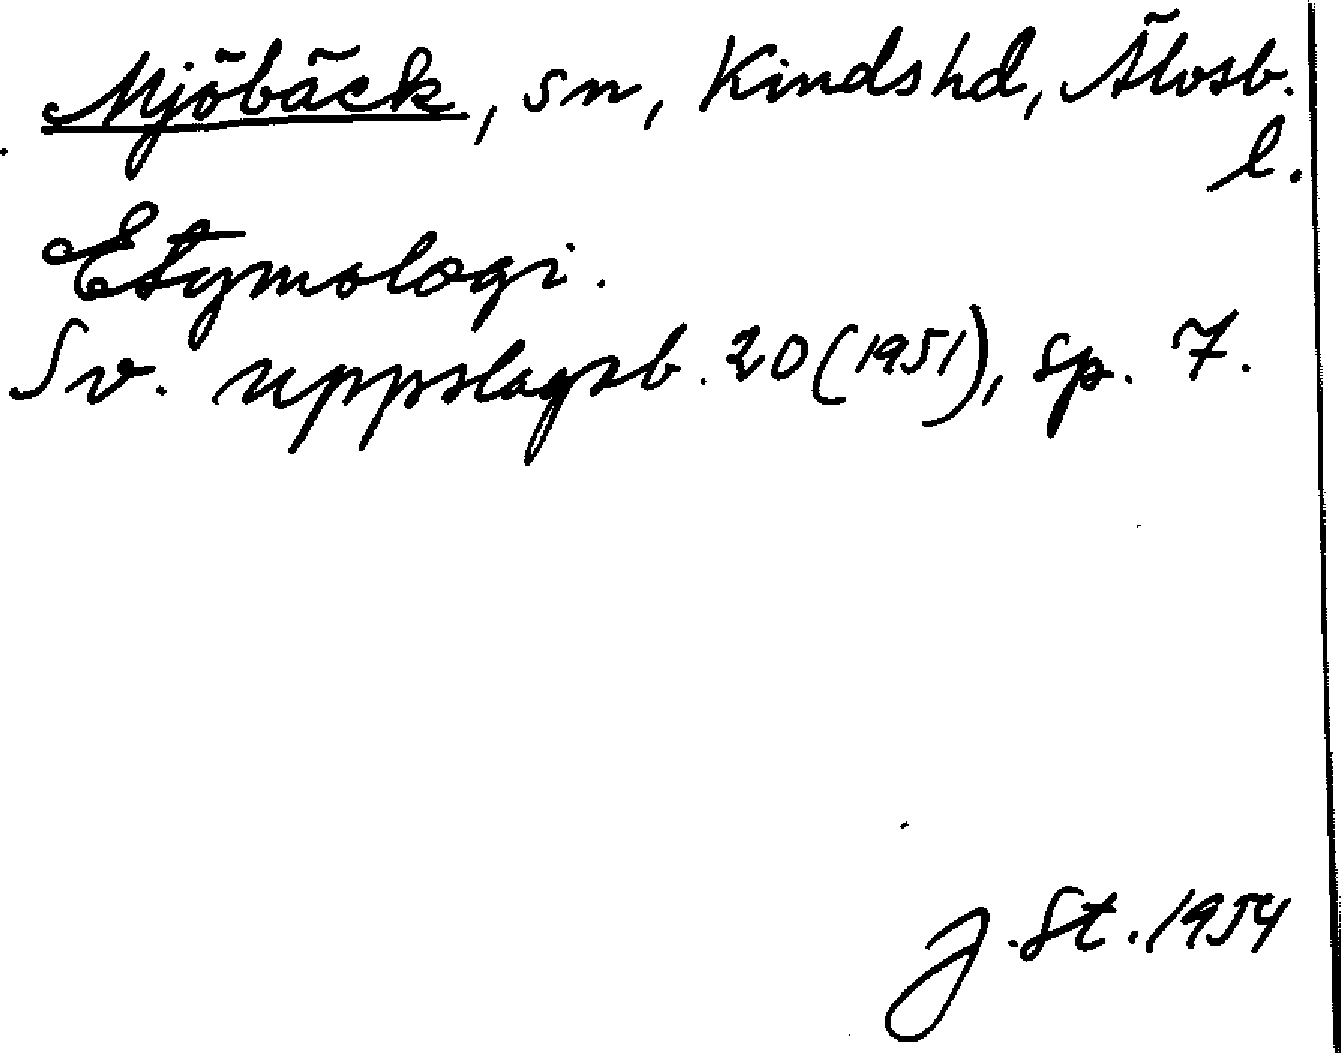 Mjöbäck, sn, Kinds hd, Älvsb.
l.
Etymologi.
Sv. uppslagsb. 20 (1951), sp. 7.
J. St. 1954